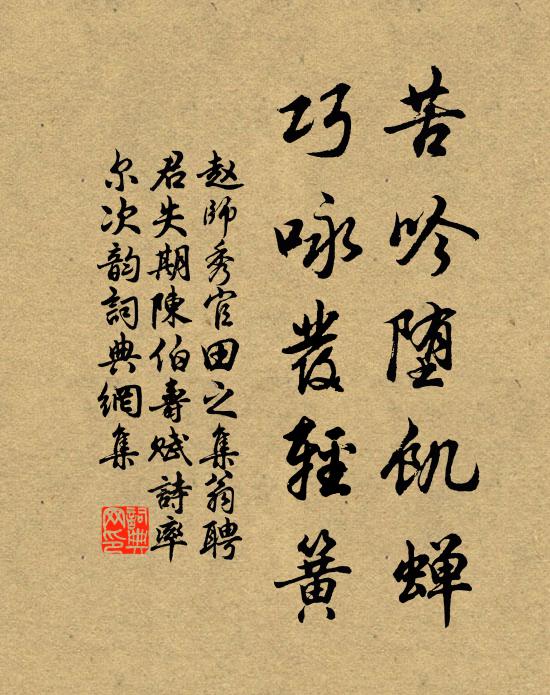 苦吟堕飢蝉
巧咏發輕簧
赵師秀官田之集翁聘
君失期陳伯壽赋詩率
尔次韵詞典網集
詞典网印